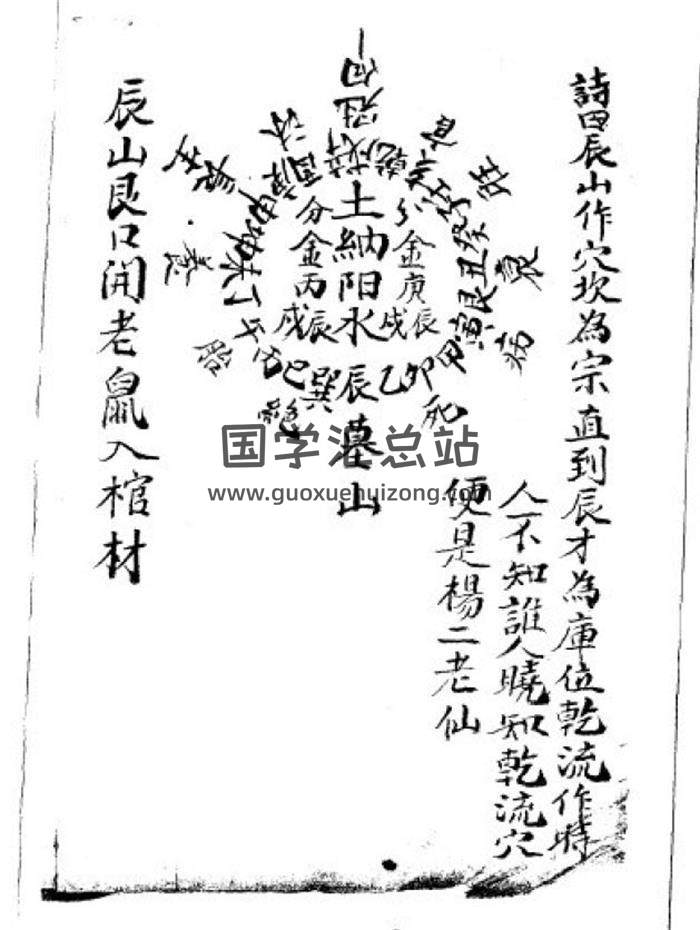 詩曰辰山作穴坎為宗直到辰才為庫位乾流作時
人不知誰人曉知乾流穴
便是楊二老仙
金庚
辰
戌
土納阳水
分金丙
辰
戌
辰
墓山
巽
巳
丙
午
丁
未
坤
申
乾
丑
艮
寅
甲
卯
乙
冠
衰
病
死
胎
養
辰山艮口開老鼠入棺材
国学汇总站
www.guoxuehuizong.com